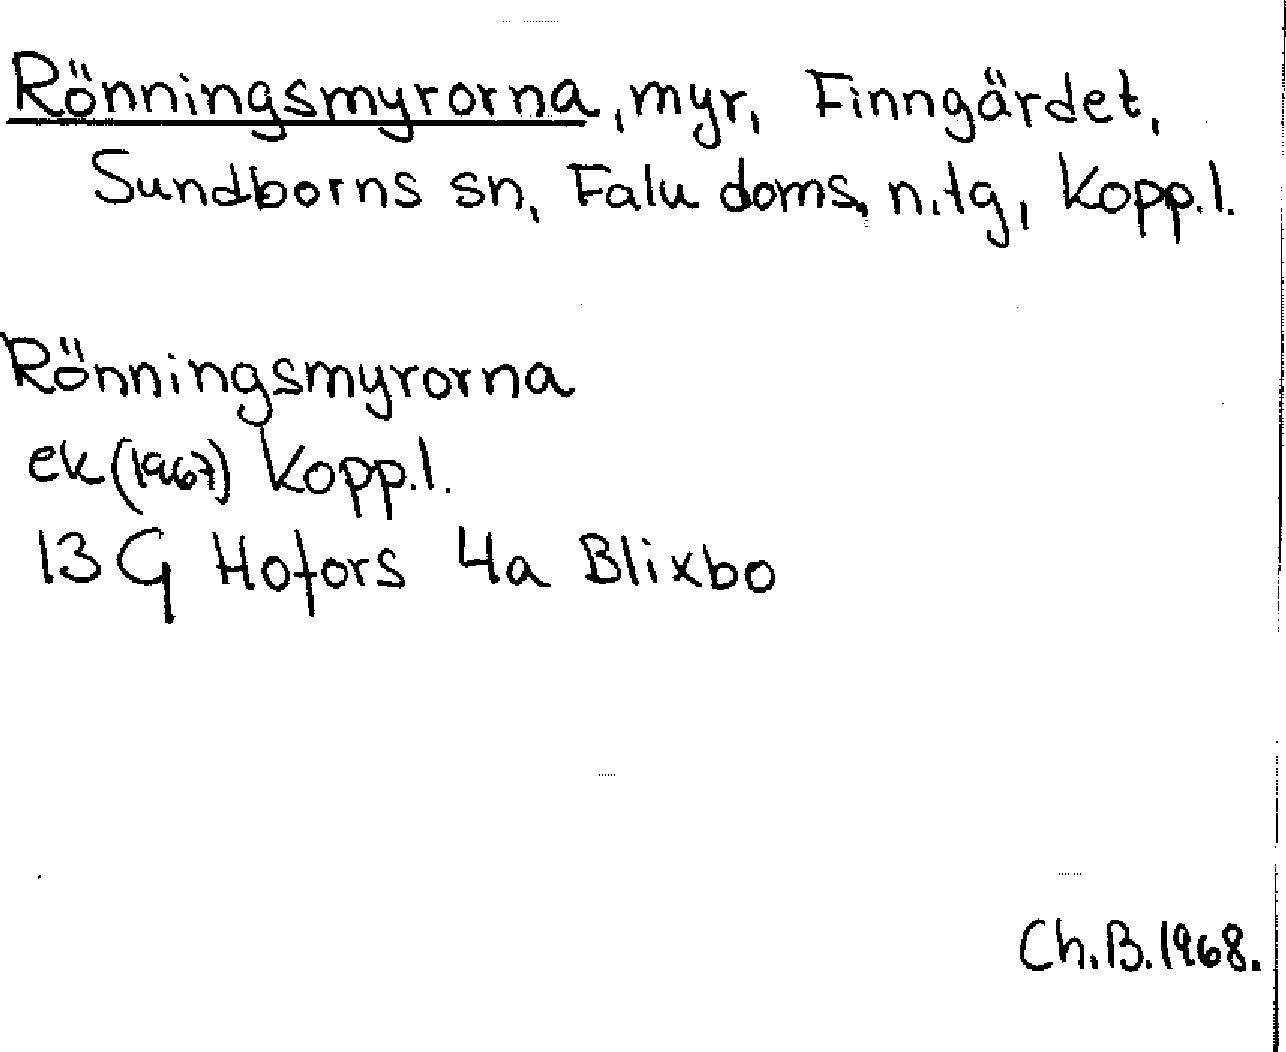 Rönningsmyrorna, myr, Finngärdet,
Sundborns sn, Falu doms. n. tg, Kopp. l.
Rönningsmyrorna
ek (1967) Kopp. l.
13 G Hofors 4a Blixbo
Ch. B. 1968.